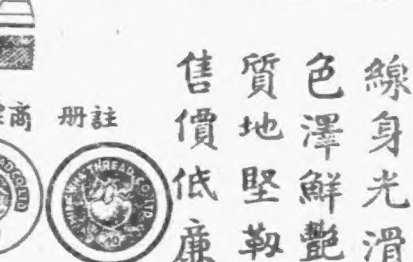 線身光滑
色澤鮮艷
質地堅韌
售價低廉
註册
商
THREAD CO. LTD.
40